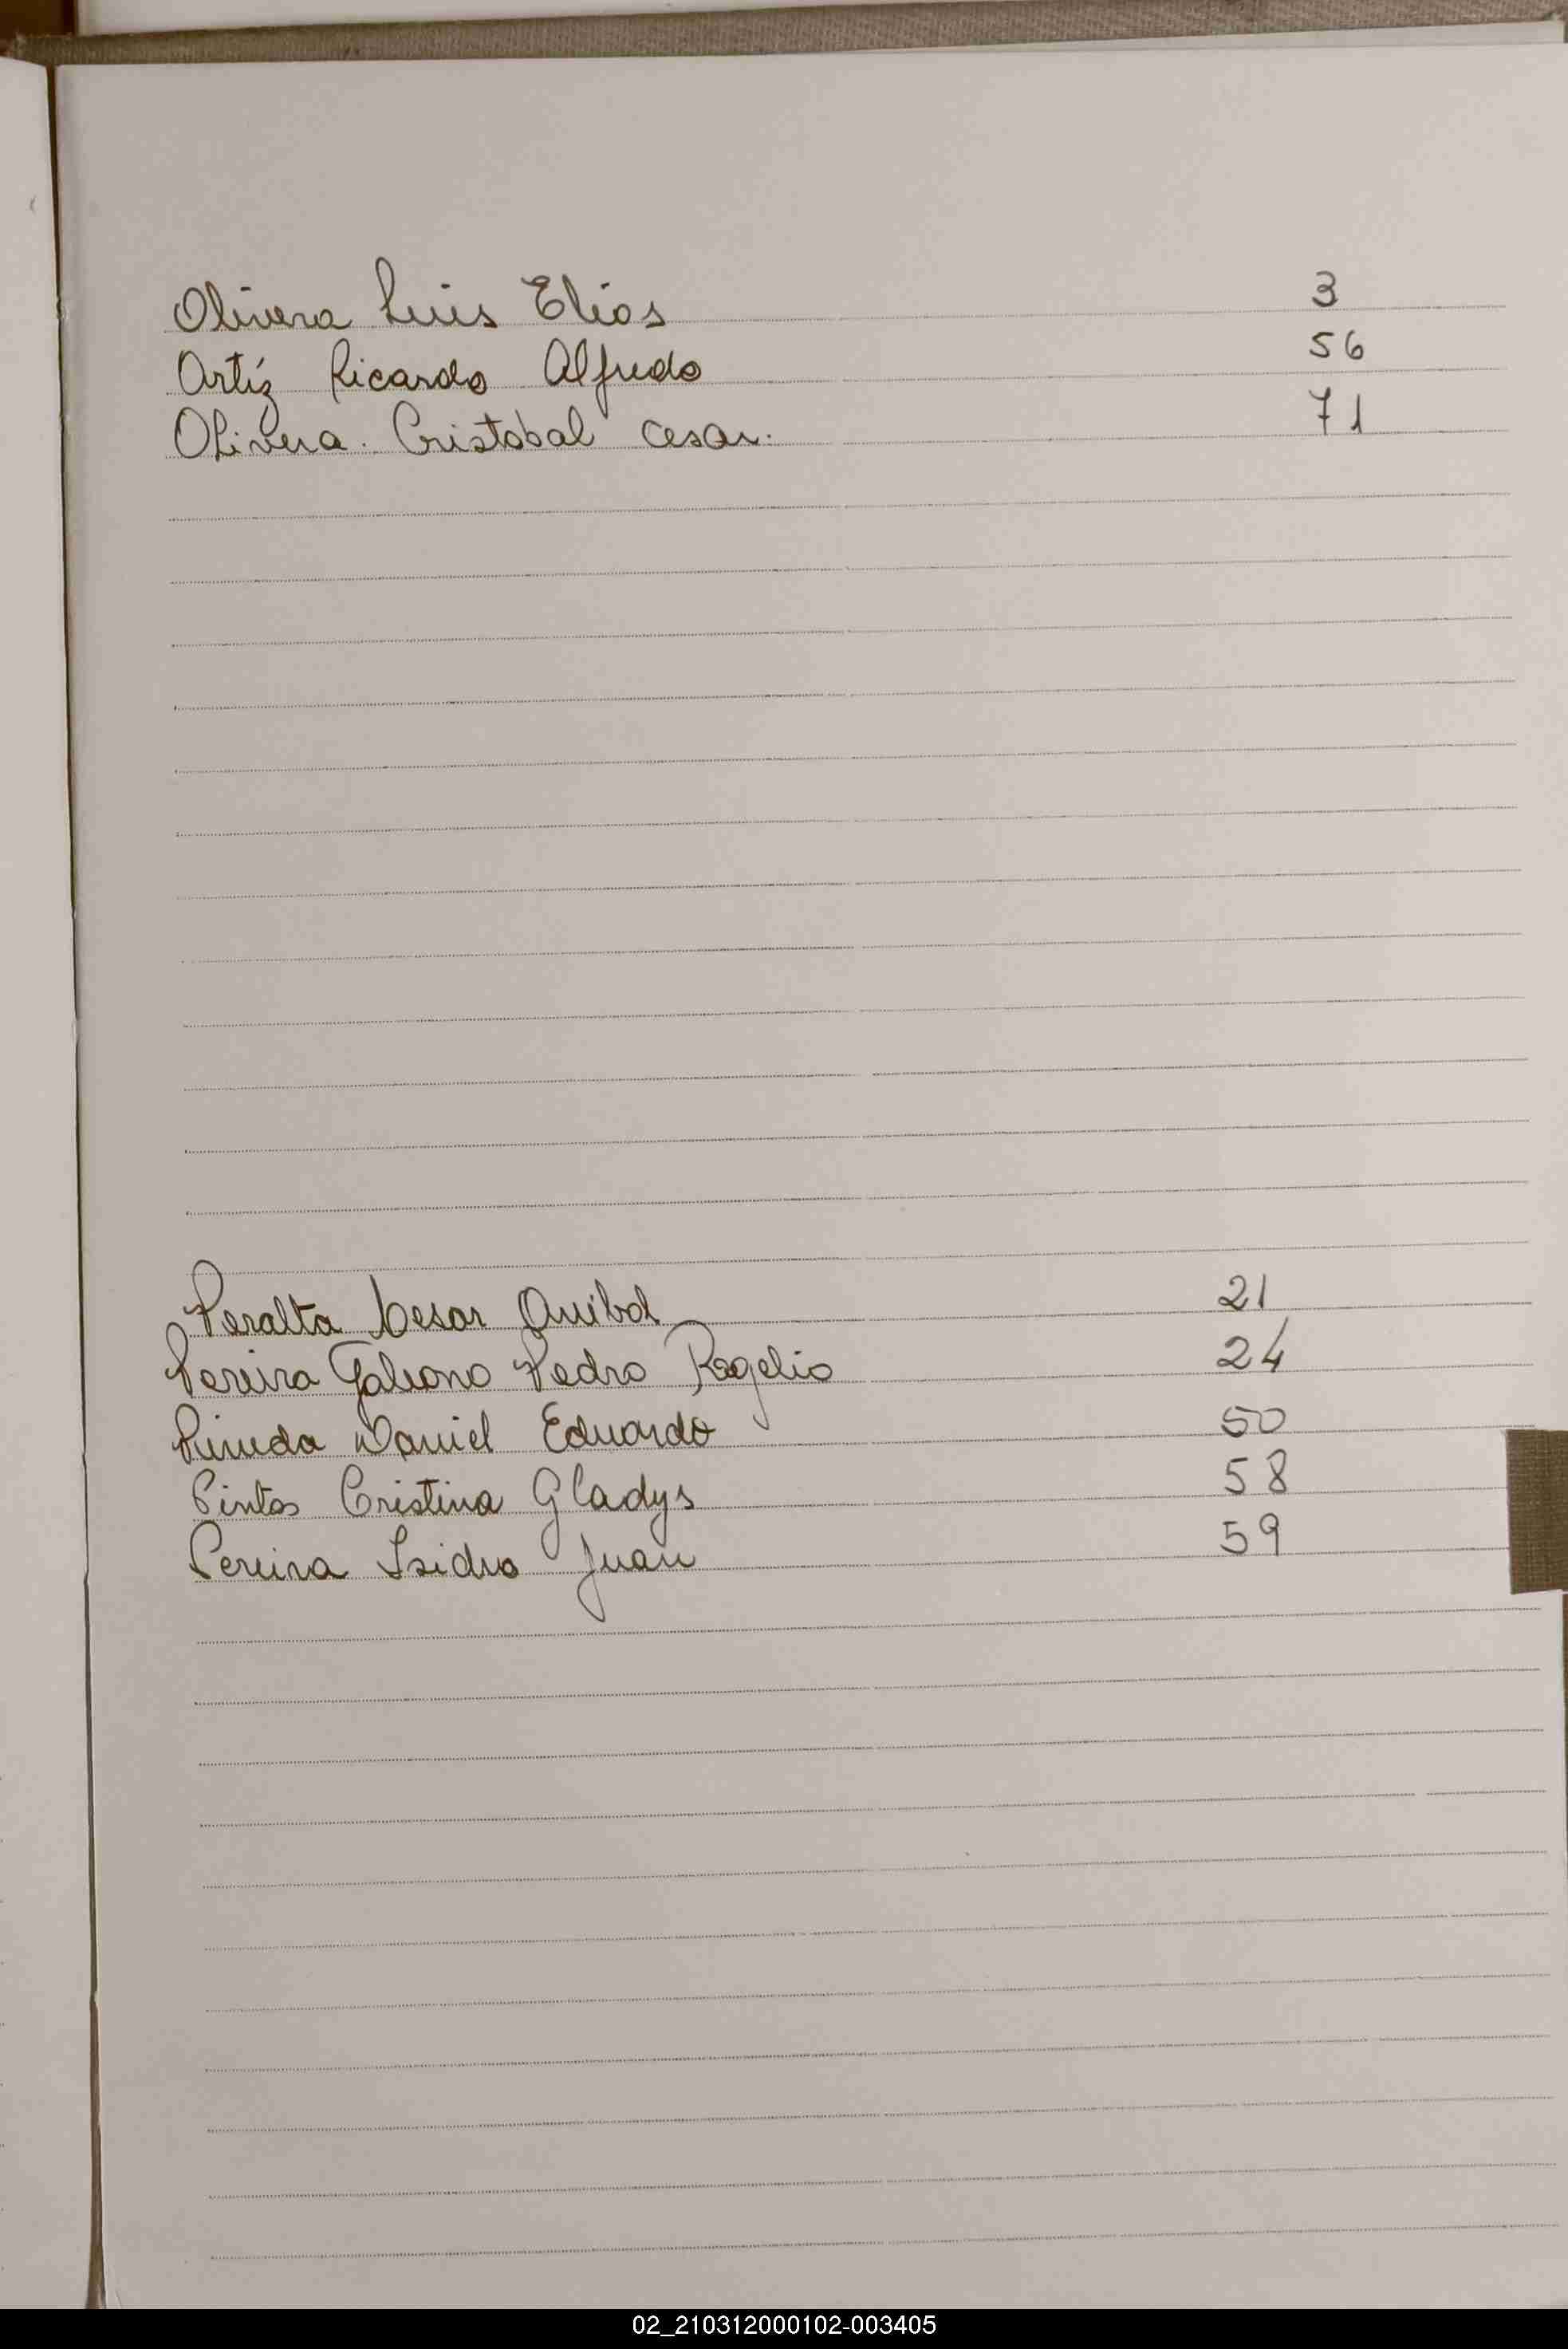 Olivera Luis Elias 3
Ortíz Ricardo Alfredo 56
Olivera. Cristobal Cesar. 71
Peralta Cesar Anibal 21
Pereira Galeano Pedro Rogelio 24
Pineda Daniel Eduardo 50
Pintos Cristina Gladys 58
Pereira Isidro Juan 59
02_210312000102-003405